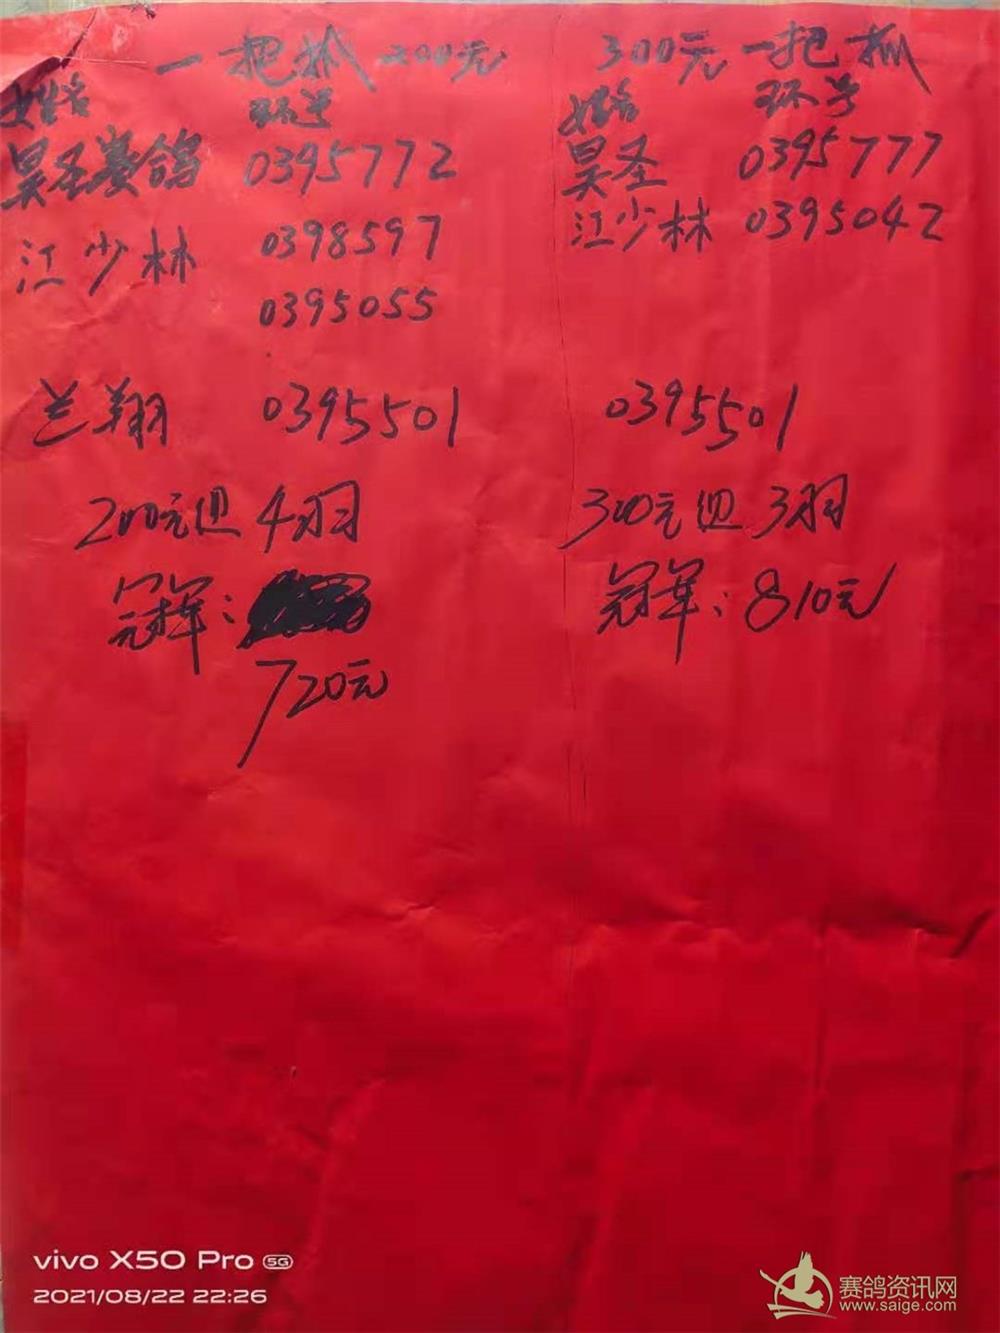 一把抓 200元
姓名 环号
昊圣赛鸽 0395772
江少林 0398597
0395055
兰翔 0395501
200元迴 4羽
冠军:
720元
300元 一把抓
姓名 环号
昊圣 0395777
江少林 0395042
0395501
300元迴 3羽
冠军: 810元
vivo X50 Pro 5G
2021/08/22 22:26
赛鸽资讯网
www.saige.com